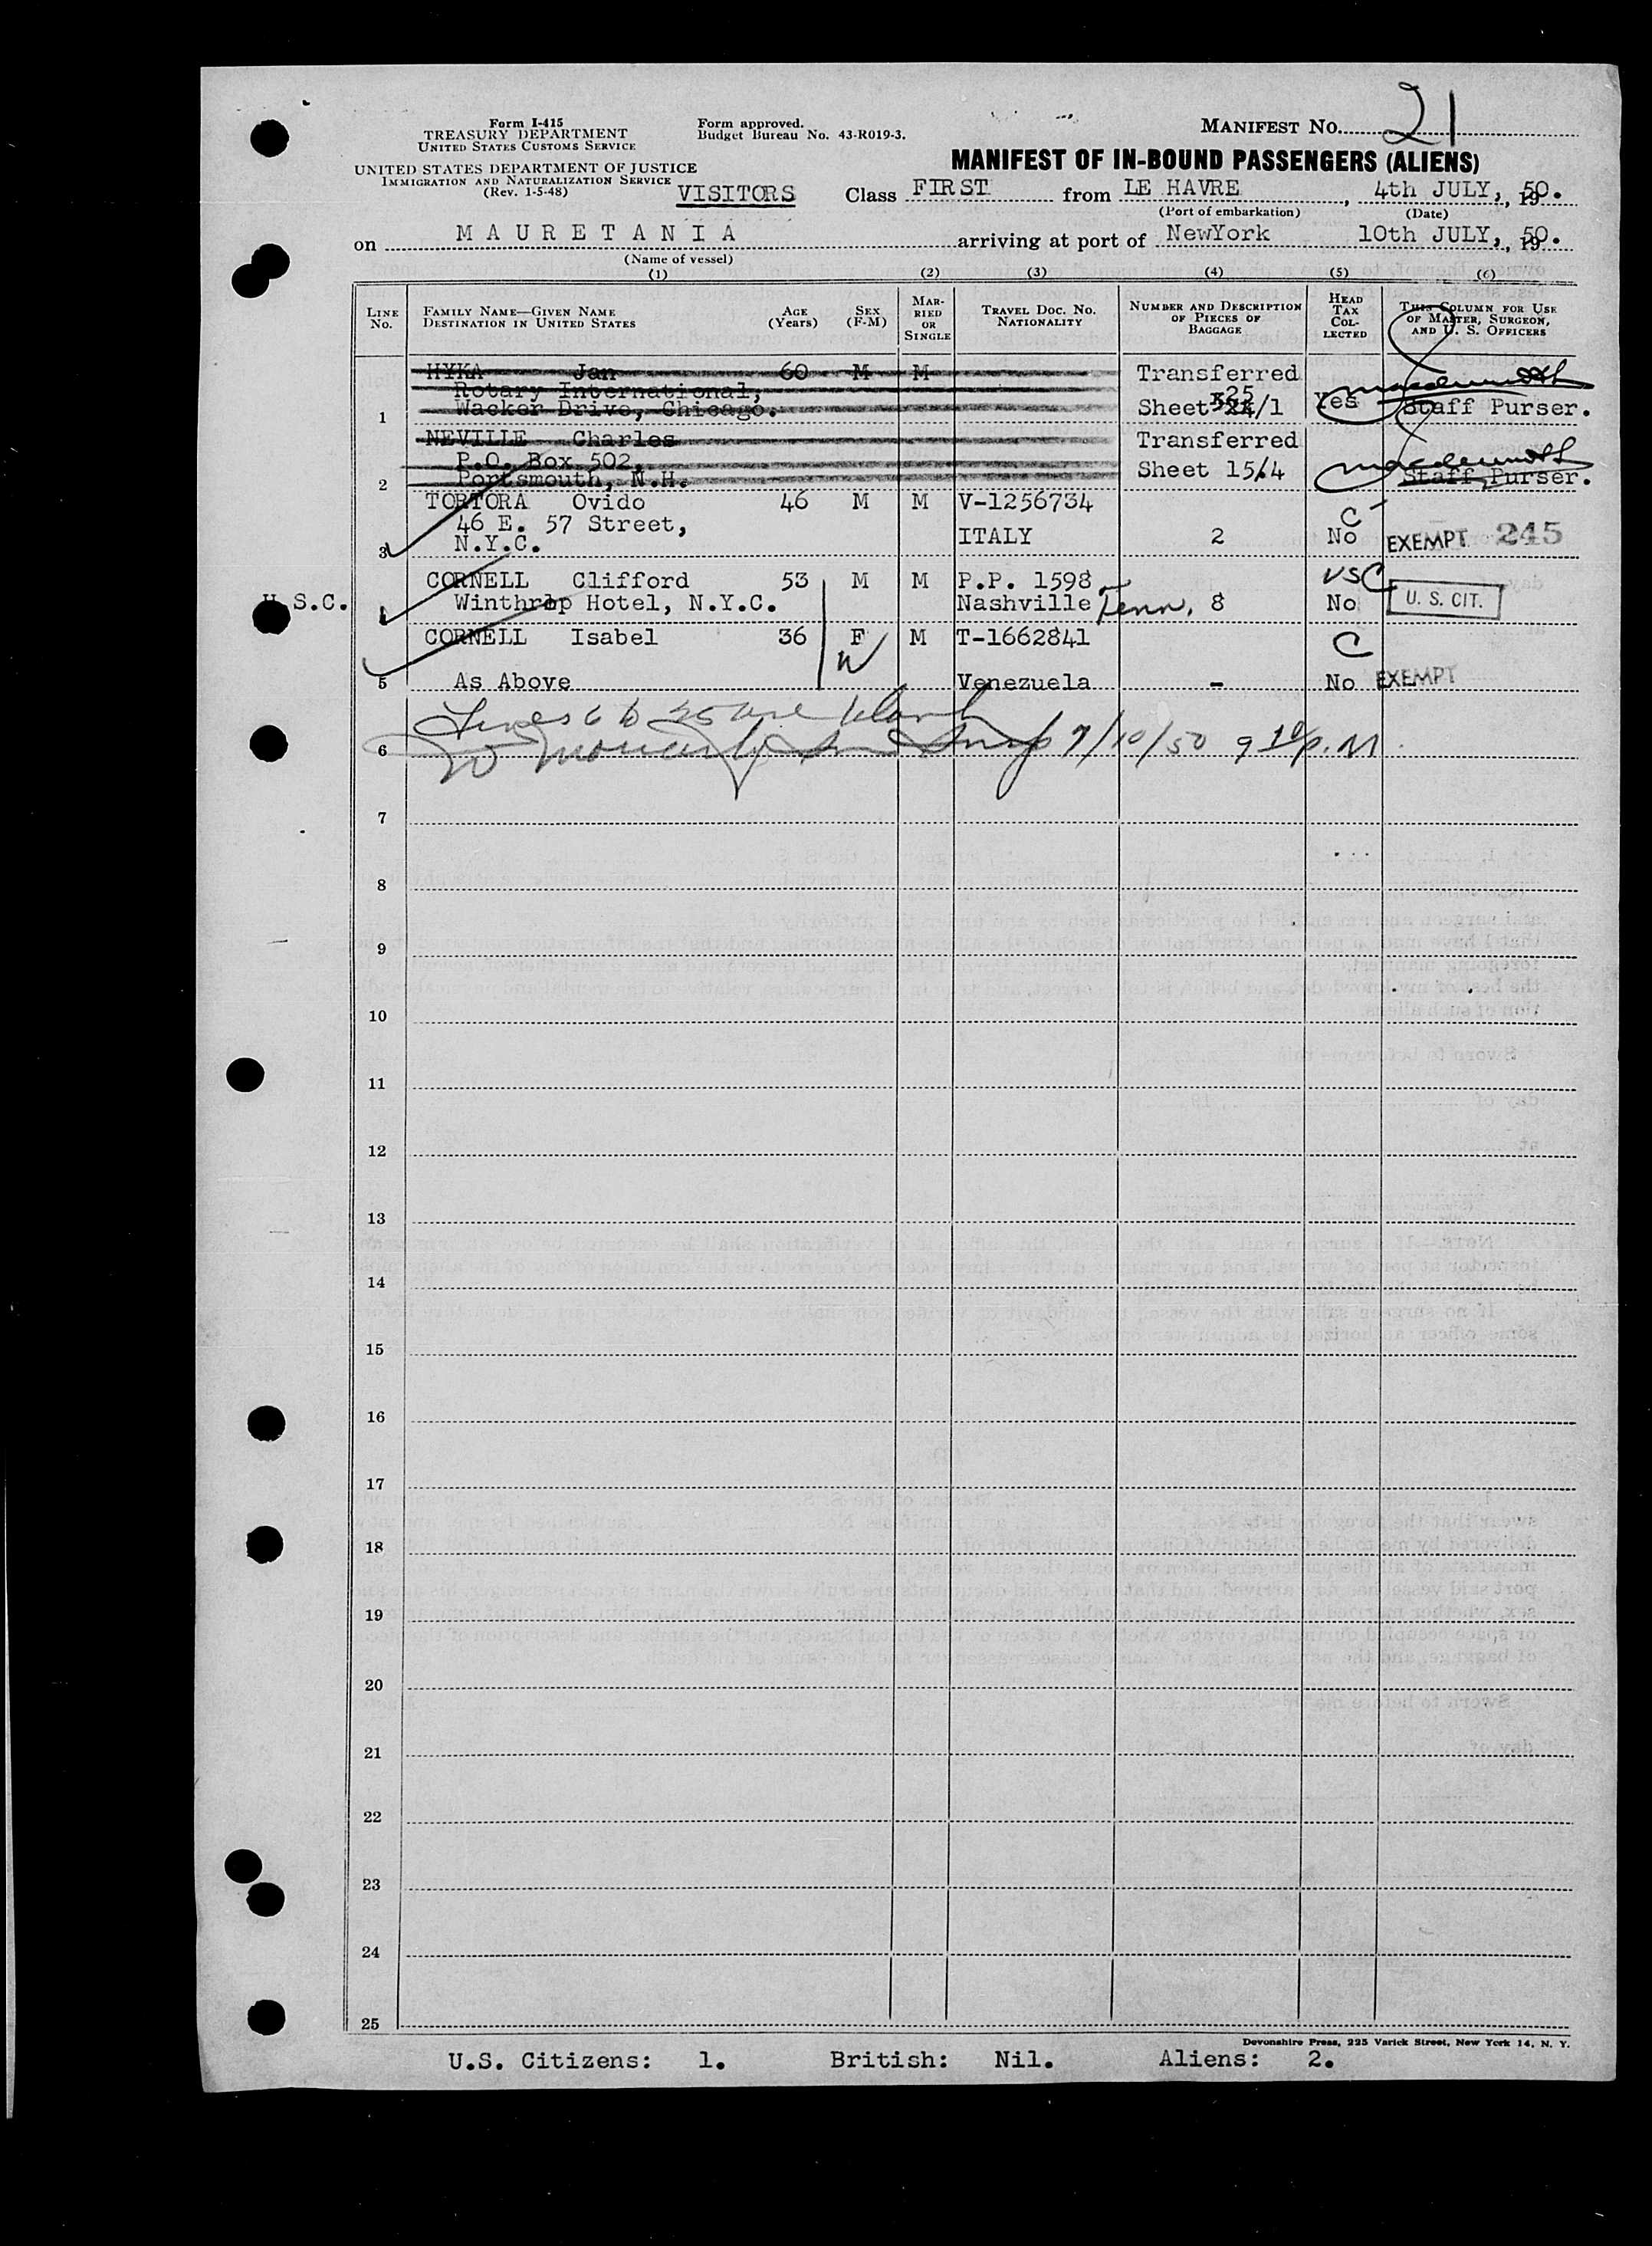 Form I-415
TREASURY DEPARTMENT
UNITED STATES CUSTOMS SERVICE
UNITED STATES DEPARTMENT OF JUSTICE
IMMIGRATION AND NATURALIZATION SERVICE
(Rev. 1-5-48)
Form approved.
Budget Bureau No. 43-R019-3.
MANIFEST NO. 21
MANIFEST OF IN-BOUND PASSENGERS (ALIENS)
VISITORS Class FIRST from LE HAVRE, 4th JULY, 1950.
(Port of embarkation) (Date)
on MAURETANIA arriving at port of NewYork 10th JULY, 1950.
(Name of vessel)
(1) (2) (3) (4) (5) (6)
LINE NO.
FAMILY NAME—GIVEN NAME
DESTINATION IN UNITED STATES
AGE (Years)
SEX (F-M)
MARRIED OR SINGLE
TRAVEL DOC. NO.
NATIONALITY
NUMBER AND DESCRIPTION OF PIECES OF BAGGAGE
HEAD TAX COLLECTED
THIS COLUMN FOR USE OF MASTER, SURGEON, AND U. S. OFFICERS
HYKA Jan 60 M M Transferred
Rotary International,
1 Wacker Drive, Chicago. Sheet 25/1 Yes Staff Purser.
NEVILLE Charles Transferred
P.O. Box 502, Sheet 15/4
2 Portsmouth, N.H. Staff Purser.
TORTORA Ovido 46 M M V-1256734 C
46 E. 57 Street, ITALY 2 No EXEMPT 245
3 N.Y.C.
CORNELL Clifford 53 M M P.P. 1598 USC
U.S.C. 4 Winthrop Hotel, N.Y.C. Nashville Tenn. 8 No U. S. CIT.
CORNELL Isabel 36 F M T-1662841 C
W
5 As Above Venezuela - No EXEMPT
Lines 6 to 25 are blank
6 7/10/50 9 10 p.M.
7
8
9
10
11
12
13
14
15
16
17
18
19
20
21
22
23
24
25
Devonshire Press, 225 Varick Street, New York 14, N. Y.
U.S. Citizens: 1. British: Nil. Aliens: 2.